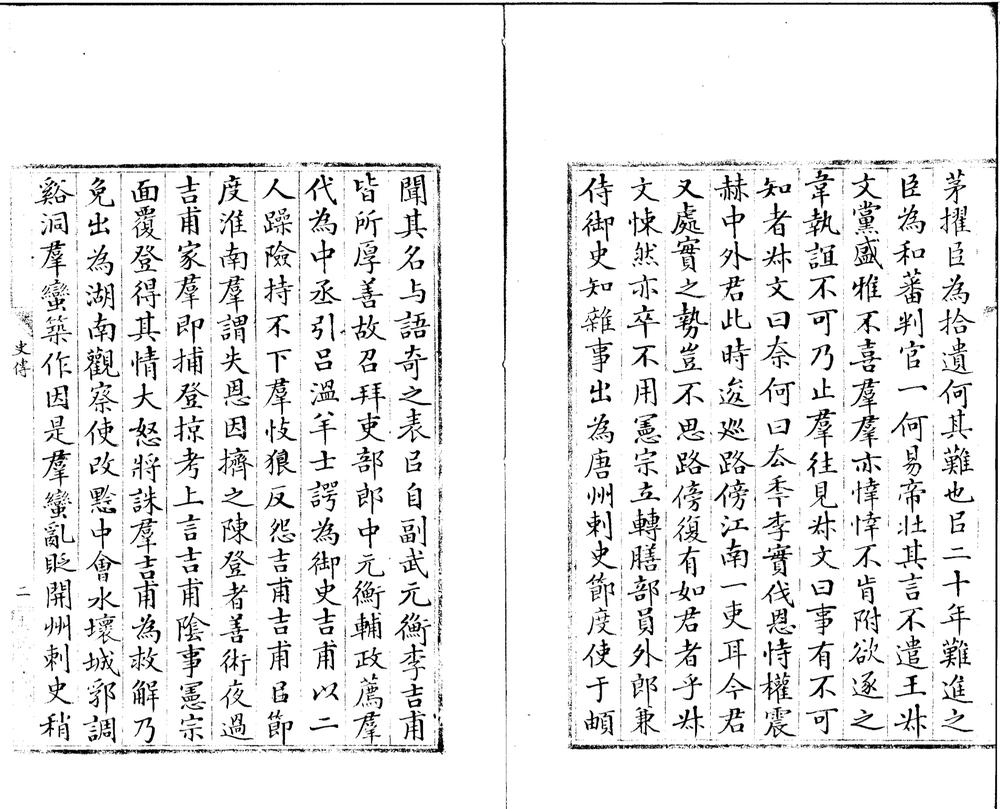 茅擢臣為拾遺何其難也㠯二十年難進之
臣為和蕃判官一何易帝壯其言不遣王𠦑
文黨盛雅不喜羣羣亦悻悻不肯附欲逐之
韋執誼不可乃止羣往見𠦑文曰事有不可
知者𠦑文曰奈何曰厺秊李實伐恩恃權震
赫中外君此時逡巡路傍江南一吏耳今君
又處實之勢豈不思路傍復有如君者乎𠦑
文悚然亦卒不用憲宗立轉膳部員外郎兼
侍御史知雜事出為唐州刺史節度使于頔
聞其名与語奇之表㠯自副武元衡李吉甫
皆所厚善故召拜吏部郎中元衡輔政薦羣
代為中丞引呂溫羊士諤為御史吉甫以二
人躁險持不下羣忮狠反怨吉甫吉甫㠯節
度淮南羣謂失恩因擠之陳登者善術夜過
吉甫家羣即捕登掠考上言吉甫陰事憲宗
面覆登得其情大怒將誅羣吉甫為救解乃
免出為湖南觀察使改黔中會水壞城郭調
谿洞羣蠻築作因是羣蠻亂貶開州刺史稍
史傳
二